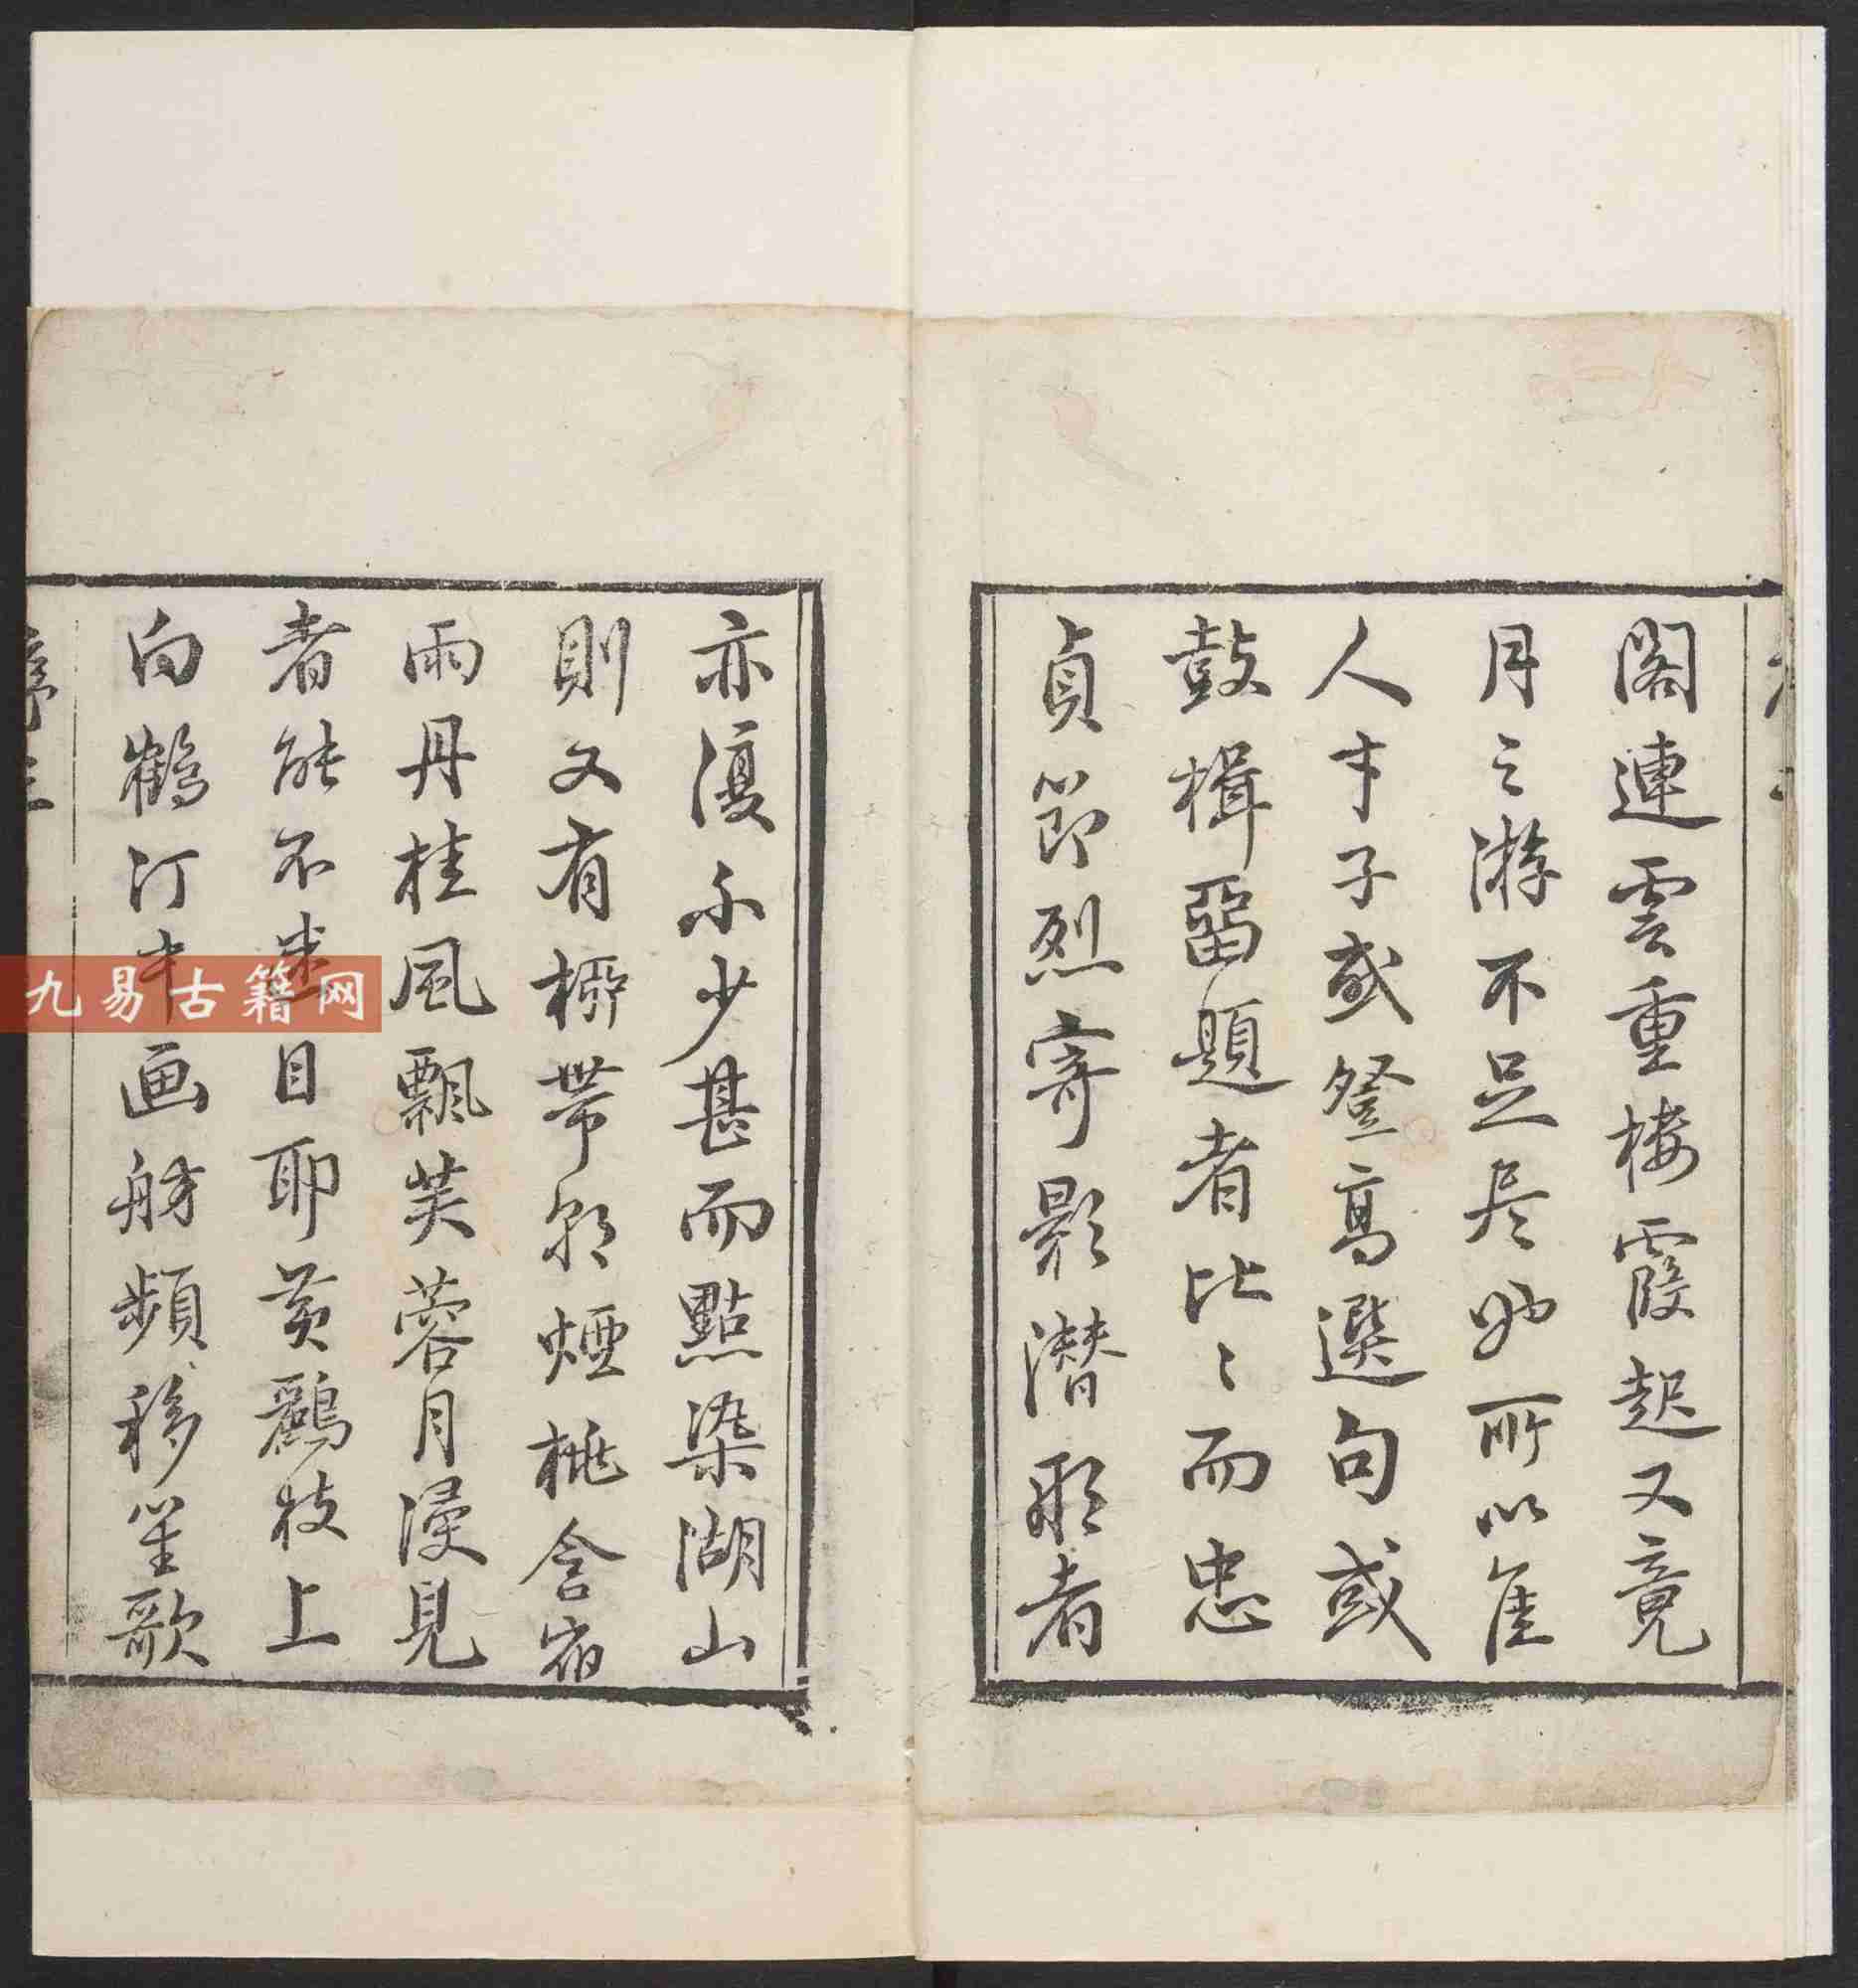 閣連雲重樓霞起又竟
月之游不足尽妙所以隹
人才子或登高選句或
鼓楫畱題者比〻而忠
貞節烈寄影潛形者
亦復不少甚而點染湖山
則又有栁帶朝煙桃含宿
雨丹桂風飄芙蓉月浸見
者能不迷目耶黃鸝枝上
白鶴汀中画舫頻移笙歌
序三
九易古籍网